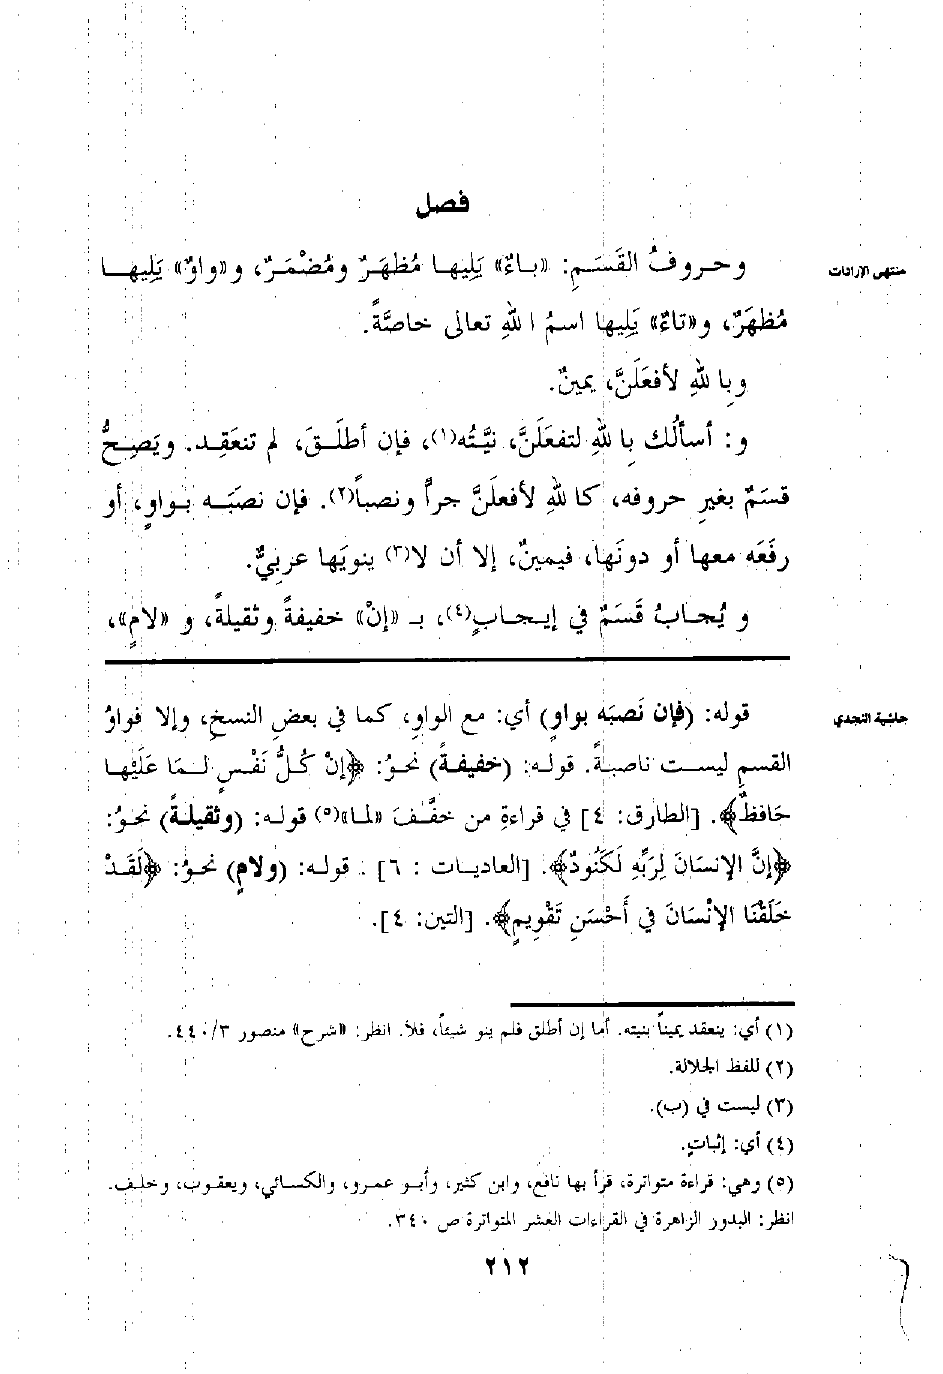 فصل
منتهى الإرادات
وحروفُ القَسَمِ: «باءٌ» يَلِيها مُظهَرٌ ومُضْمَرٌ، و«واوٌ» يَلِيها
مُظهَرٌ، و«تاءٌ» يَلِيها اسمُ اللهِ تعالى خاصَّةً.
وبِاللهِ لأفعَلَنَّ، يمينٌ.
و: أسألُك بِاللهِ لتفعَلَنَّ، نيَّتُه(١)، فإن أطلَقَ، لم تنعَقِد. ويَصِحُّ
قسَمٌ بغيرِ حروفه، كاللهِ لأفعلَنَّ جراً ونصباً(٢). فإن نصَبَه بواوٍ، أو
رفَعَه معها أو دونَها، فيمينٌ، إلا أن لا(٣) ينويَها عربيٌّ.
و يُجابُ قَسَمٌ في إيجابٍ(٤)، بـ «إنْ» خفيفةً وثقيلةً، و «لامٍ»،
حاشية النجدي
قوله: (فإن نَصبَه بواوٍ) أي: مع الواوِ، كما في بعضِ النسخِ، وإلا فواوُ
القسمِ ليست ناصبةً. قوله: (خفيفةً) نحوُ: ﴿إنْ كُلُّ نَفْسٍ لَمَا عَلَيْها
حَافظٌ﴾. [الطارق: ٤] في قراءةِ من خفَّفَ «لما»(٥) قوله: (وثقيلةً) نحوُ:
﴿إنَّ الإنسَانَ لِرَبِّهِ لَكَنُودٌ﴾. [العاديات : ٦] . قوله: (ولامٍ) نحوُ: ﴿لَقَدْ
خَلَقْنَا الإنْسَانَ في أَحْسَنِ تَقْويمٍ﴾. [التين: ٤].
(١) أي: ينعقد يميناً بنيته. أما إن أطلق فلم ينو شيئاً، فلا. انظر: «شرح» منصور ٤٤٠/٣.
(٢) للفظ الجلالة.
(٣) ليست في (ب).
(٤) أي: إثباتٍ.
(٥) وهي: قراءة متواترة، قرأ بها نافع، وابن كثير، وأبو عمرو، والكسائي، ويعقوب، وخلف.
انظر: البدور الزاهرة في القراءات العشر المتواترة ص ٣٤٠.
٢١٢